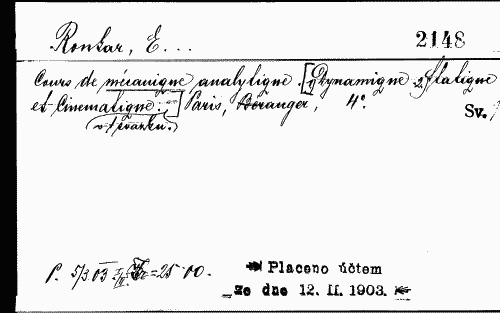 Ronkar, E...
2148
Cours de mécanique analytique. [Dynamique. Statique
et Cinematique.] Paris, Béranger, 4°.
Sv.
v 1 svazku.
P. 5/3 03 Fr = 25·00.
Placeno účtem
ze dne 12. II. 1903.